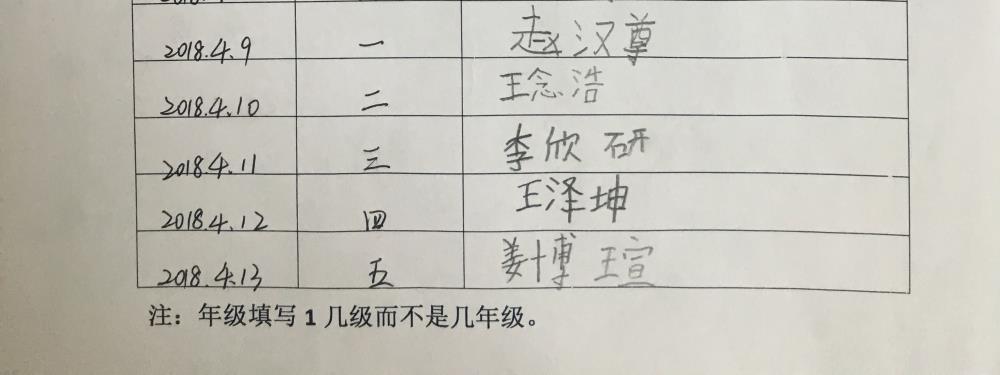 2018.4.9 一 赵汉尊
2018.4.10 二 王念浩
2018.4.11 三 李欣研
2018.4.12 四 王泽坤
2018.4.13 五 姜博瑄
注：年级填写1几级而不是几年级。